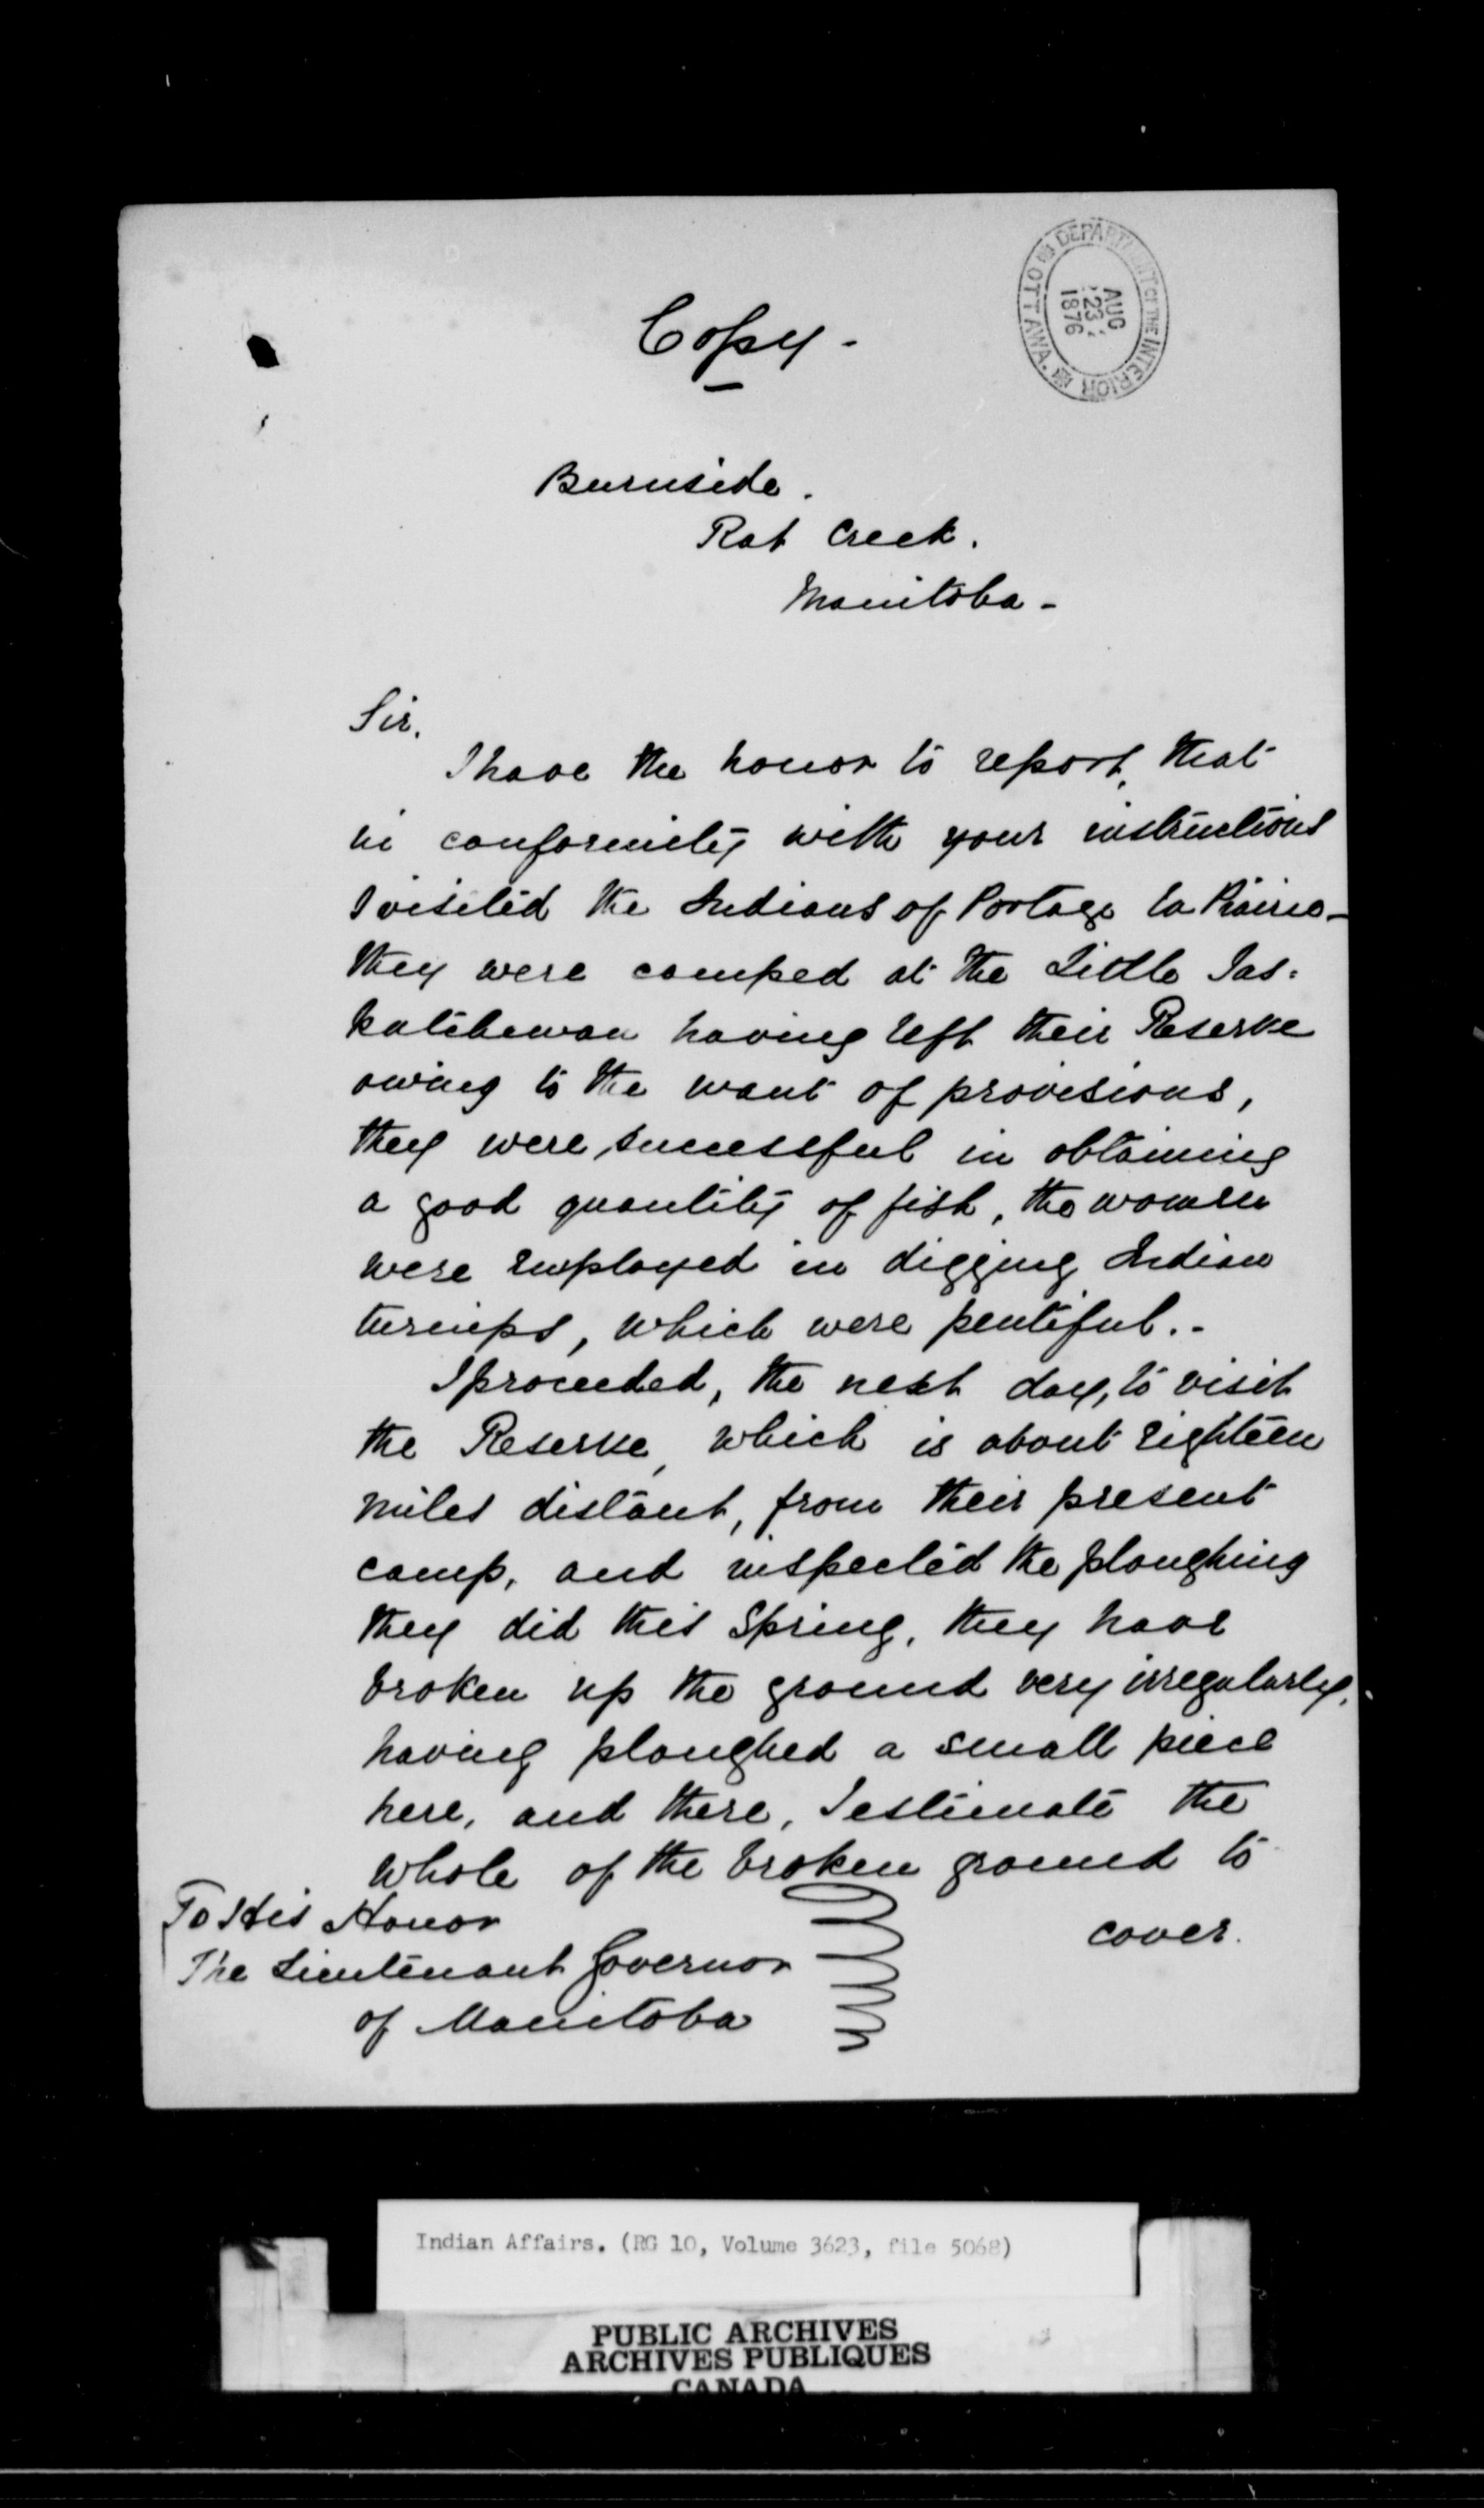 Copy -
DEPARTMENT OF THE INTERIOR
OTTAWA.
AUG
23
1876
Burnside.
Rat Creek.
Manitoba -
Sir,
I have the honor to report, that
in conformity with your instructions
I visited the Indians of Portage la Prairie -
they were camped at the Little Sas=
katchewan having left their Reserve
owing to the want of provisions,
they were successful in obtaining
a good quantity of fish, the women
were employed in digging Indian
turnips, which were pentiful. -
I proceeded, the next day, to visit
the Reserve, which is about eighteen
miles distant, from their present
camp, and inspected the ploughing
they did this Spring, they have
broken up the ground very irregularly,
having ploughed a small piece
here, and there, I estimate the
whole of the broken ground to
cover.
To His Honor
The Lieutenant Governor
of Manitoba
Indian Affairs. (RG 10, Volume 3623, file 5068)
PUBLIC ARCHIVES
ARCHIVES PUBLIQUES
CANADA